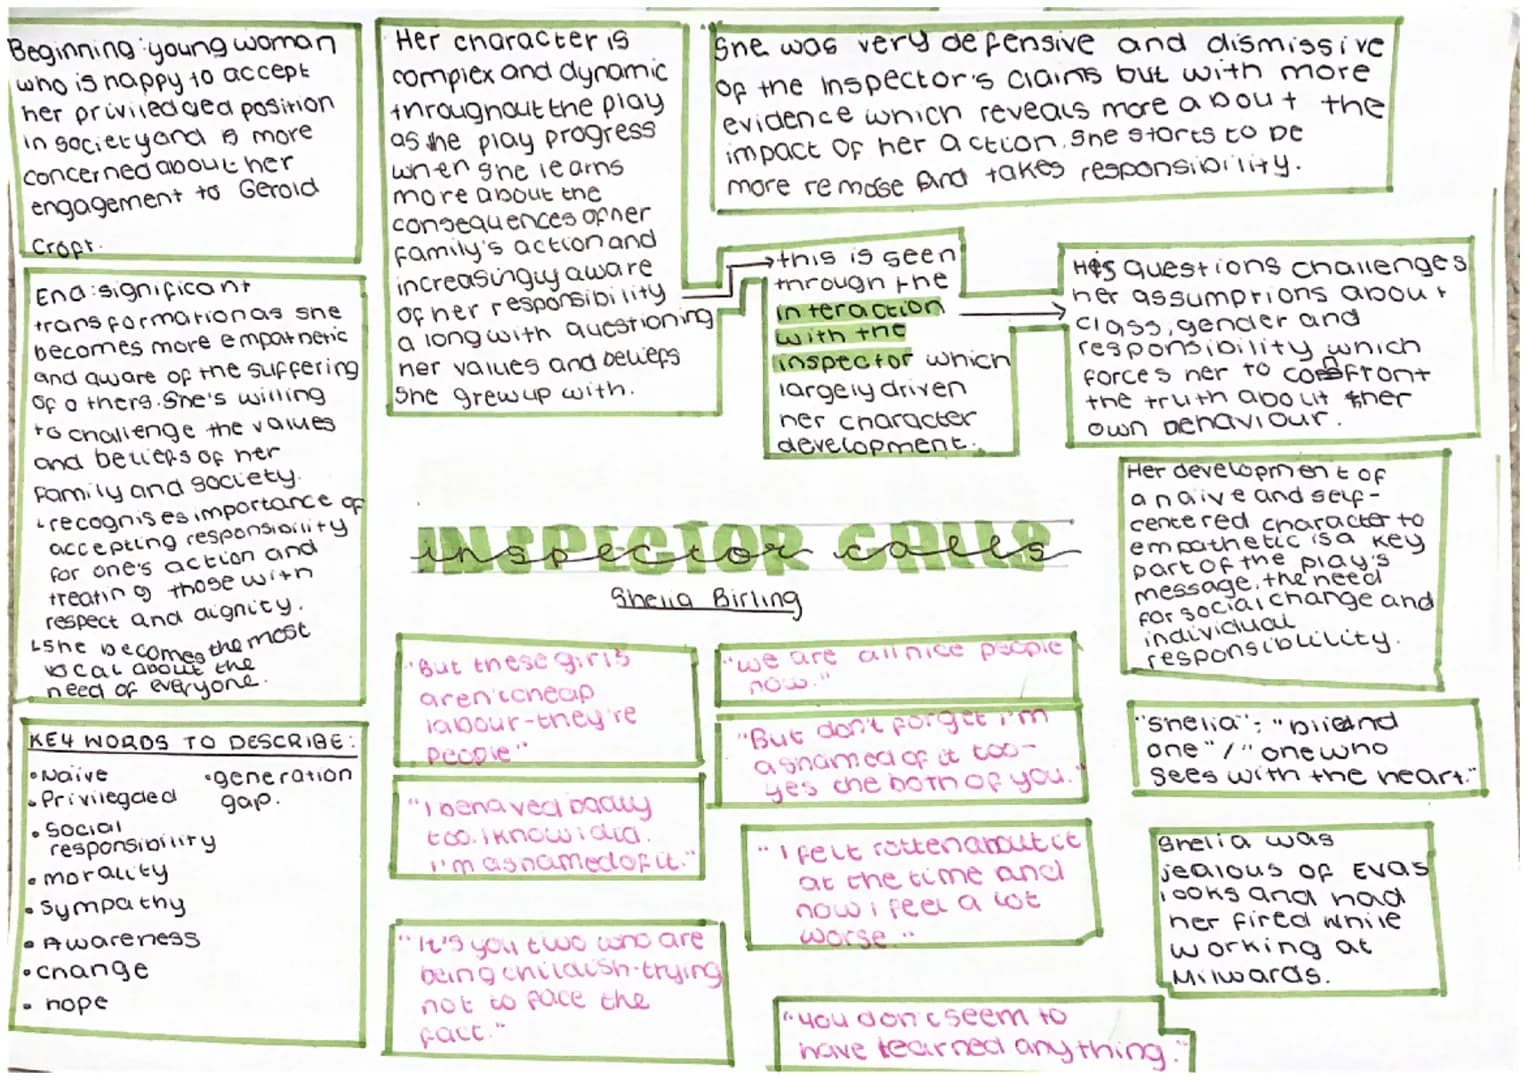 Beginning: young woman
who is happy to accept
her priviledged position
in society and is more
concerned about her
engagement to Gerald
Croft.
End: significant
transformation as she
becomes more empathetic
and aware of the suffering
of others. She's willing
to challenge the values
and beliefs of her
family and society.
↳ recognises importance of
accepting responsibility
for one's action and
treating those with
respect and dignity.
↳ she becomes the most
vocal about the
need of everyone.
KEY WORDS TO DESCRIBE:
• Naive
• Privilegded
• Social
responsibility
• morality
• Sympathy
• Awareness
• change
• hope
• generation
gap.
Her character is
complex and dynamic
throughout the play
as the play progress
when she learns
more about the
consequences of her
family's action and
increasingly aware
of her responsibility
along with questioning
her values and beliefs
she grew up with.
She was very defensive and dismissive
of the inspector's claims but with more
evidence which reveals more about the
impact of her action. She starts to be
more remose and takes responsibility.
this is seen
through the
interaction
with the
inspector which
largely driven
her character
development.
His questions challenges
her assumptions about
class, gender and
responsibility which
forces her to confront
the truth about her
own behaviour.
Her development of
a naive and self-
centered character to
empathetic is a key
part of the play's
message. the need
for social change and
individual
responsiblility.
INSPECTOR CALLS
inspector calls
Shelia Birling
"But these girls
aren't cheap
labour - they're
people"
"we are all nice people
now."
"But don't forget i'm
ashamed of it too -
yes the both of you."
"I behaved badly
too. I know i did.
I'm ashamed of it."
"I felt rotten about it
at the time and
now i feel a lot
worse."
"It's you two who are
being childish - trying
not to face the
fact."
"you don't seem to
have learned anything."
"Shelia": "blind
one" / "one who
sees with the heart."
Shelia was
jealous of Evas
looks and had
her fired while
working at
Milwards.